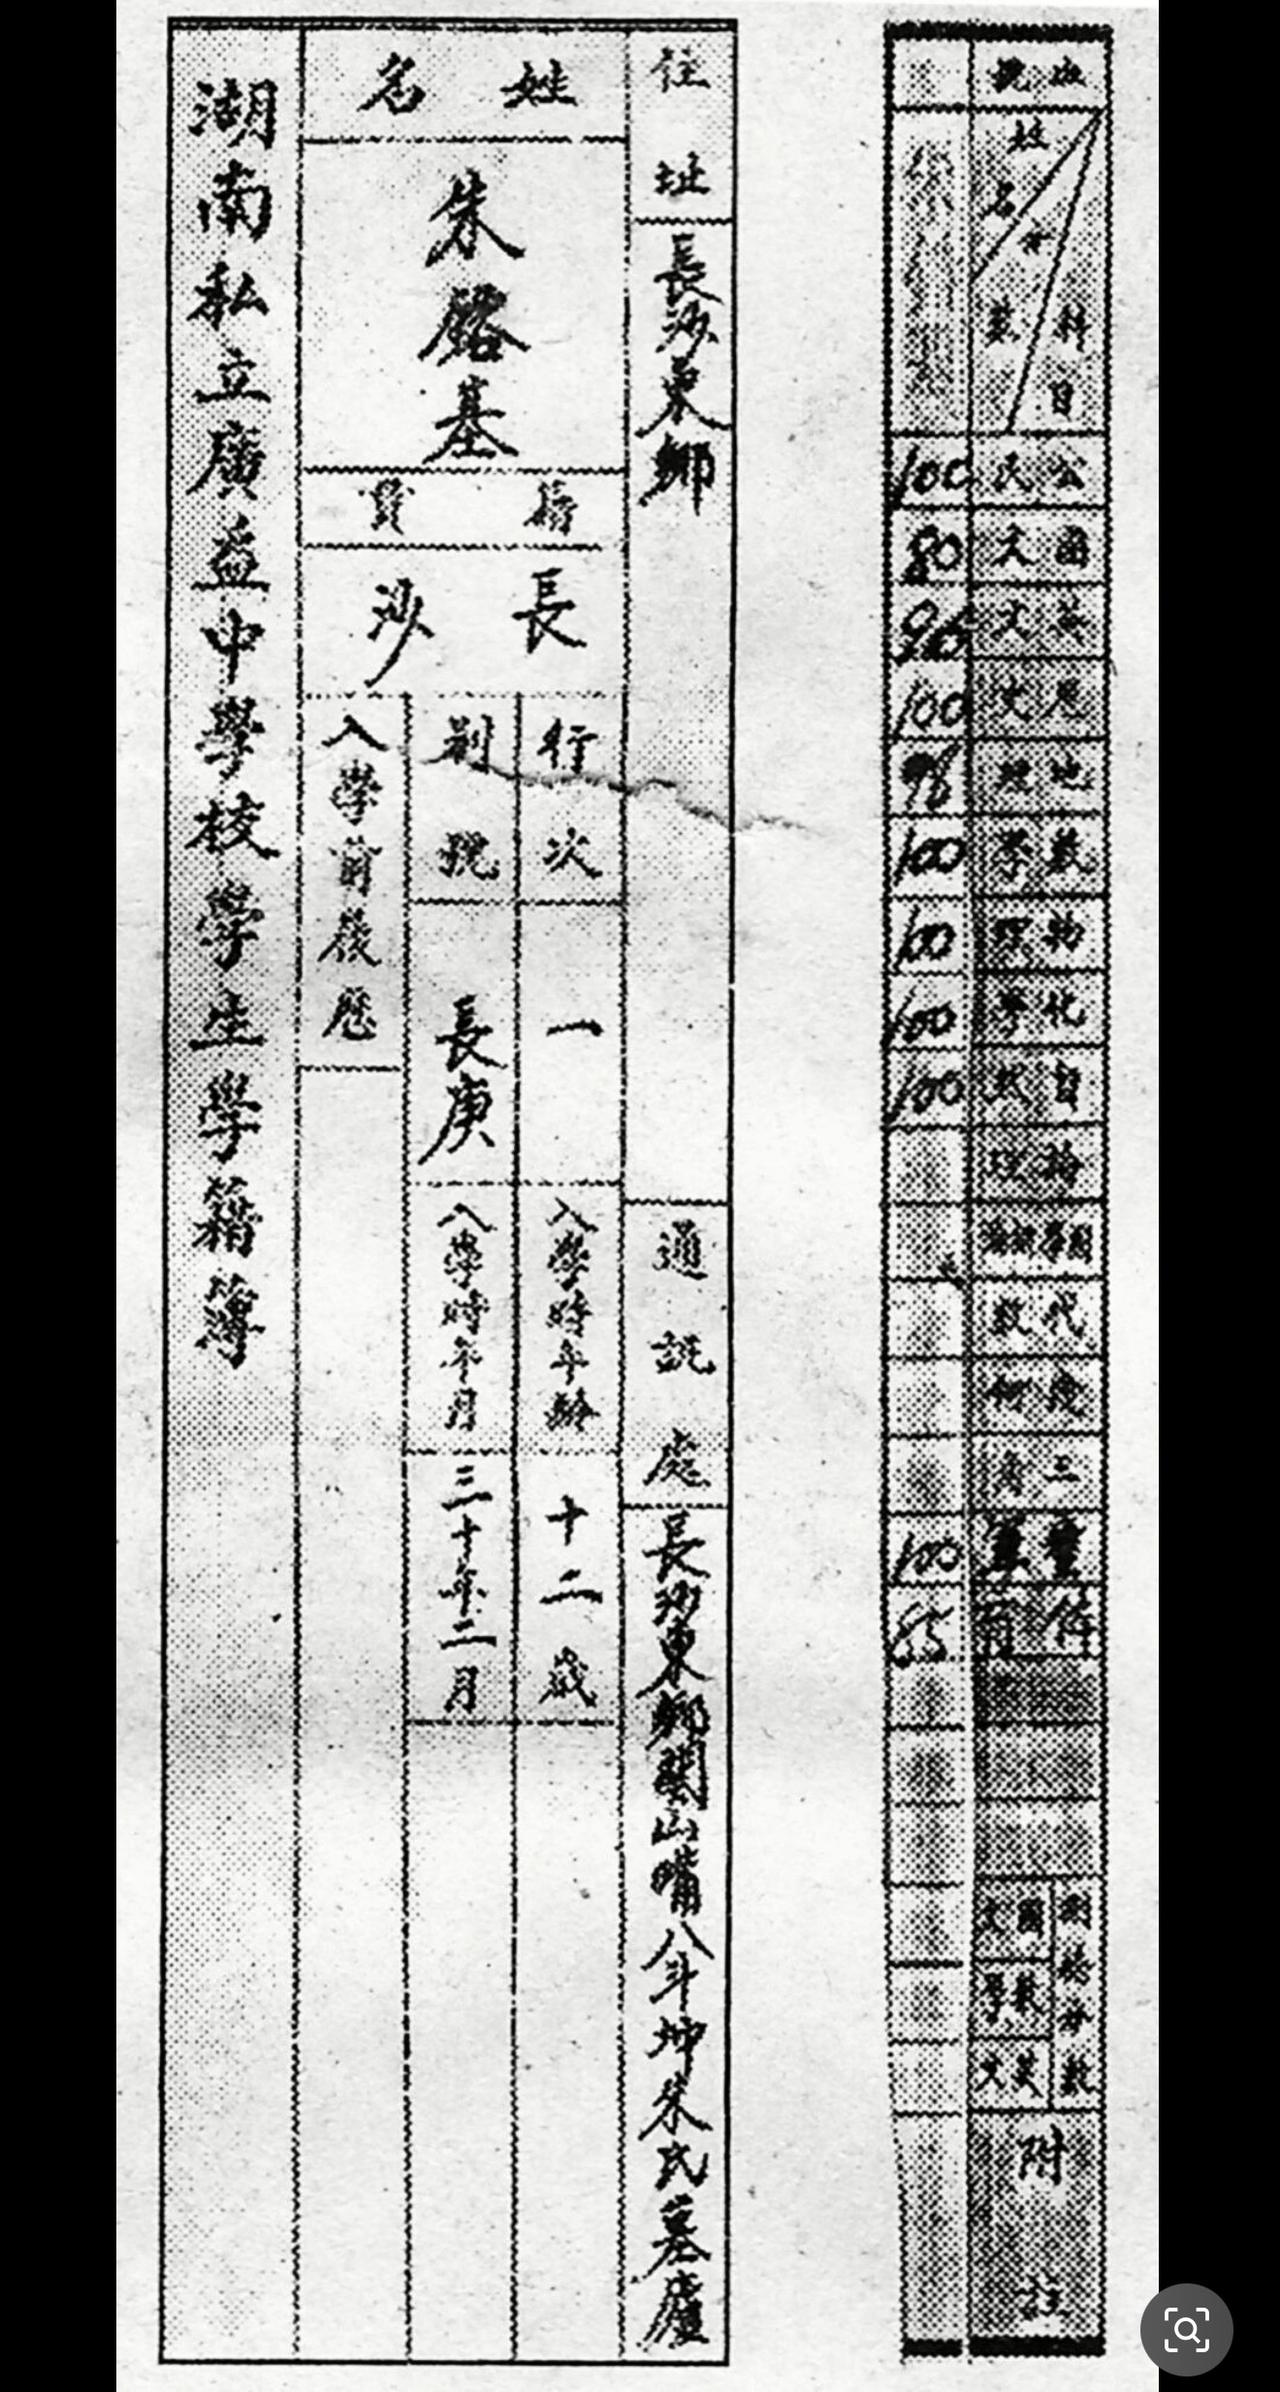 湖南私立廣益中學校學生學籍簿
姓名
朱鎔基
籍貫
長沙
行次
一
別號
長庚
入學前履歷
入學時年齡
十二歲
入學時年月
三十年二月
住址
長沙東鄉
通訊處
長沙東鄉關山嘴八斗坤朱氏墓廬
姓名
科目
公民
100
國文
80
英文
96
歷史
100
地理
98
數學
100
物理
100
化學
100
自然
100
論理
代數
幾何
三角
童軍
100
體育
85
國文
數學
英文
附註